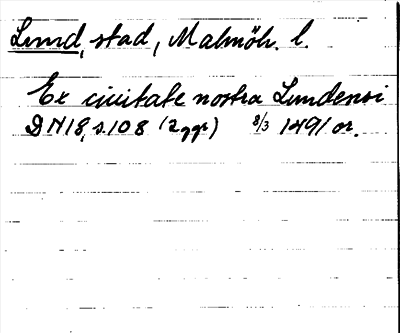 Lund, stad, Malmöh. l.
Ex ciuitate nostra Lundensi
DN18, s.108 (2 ggr) 8/3 1491 or.